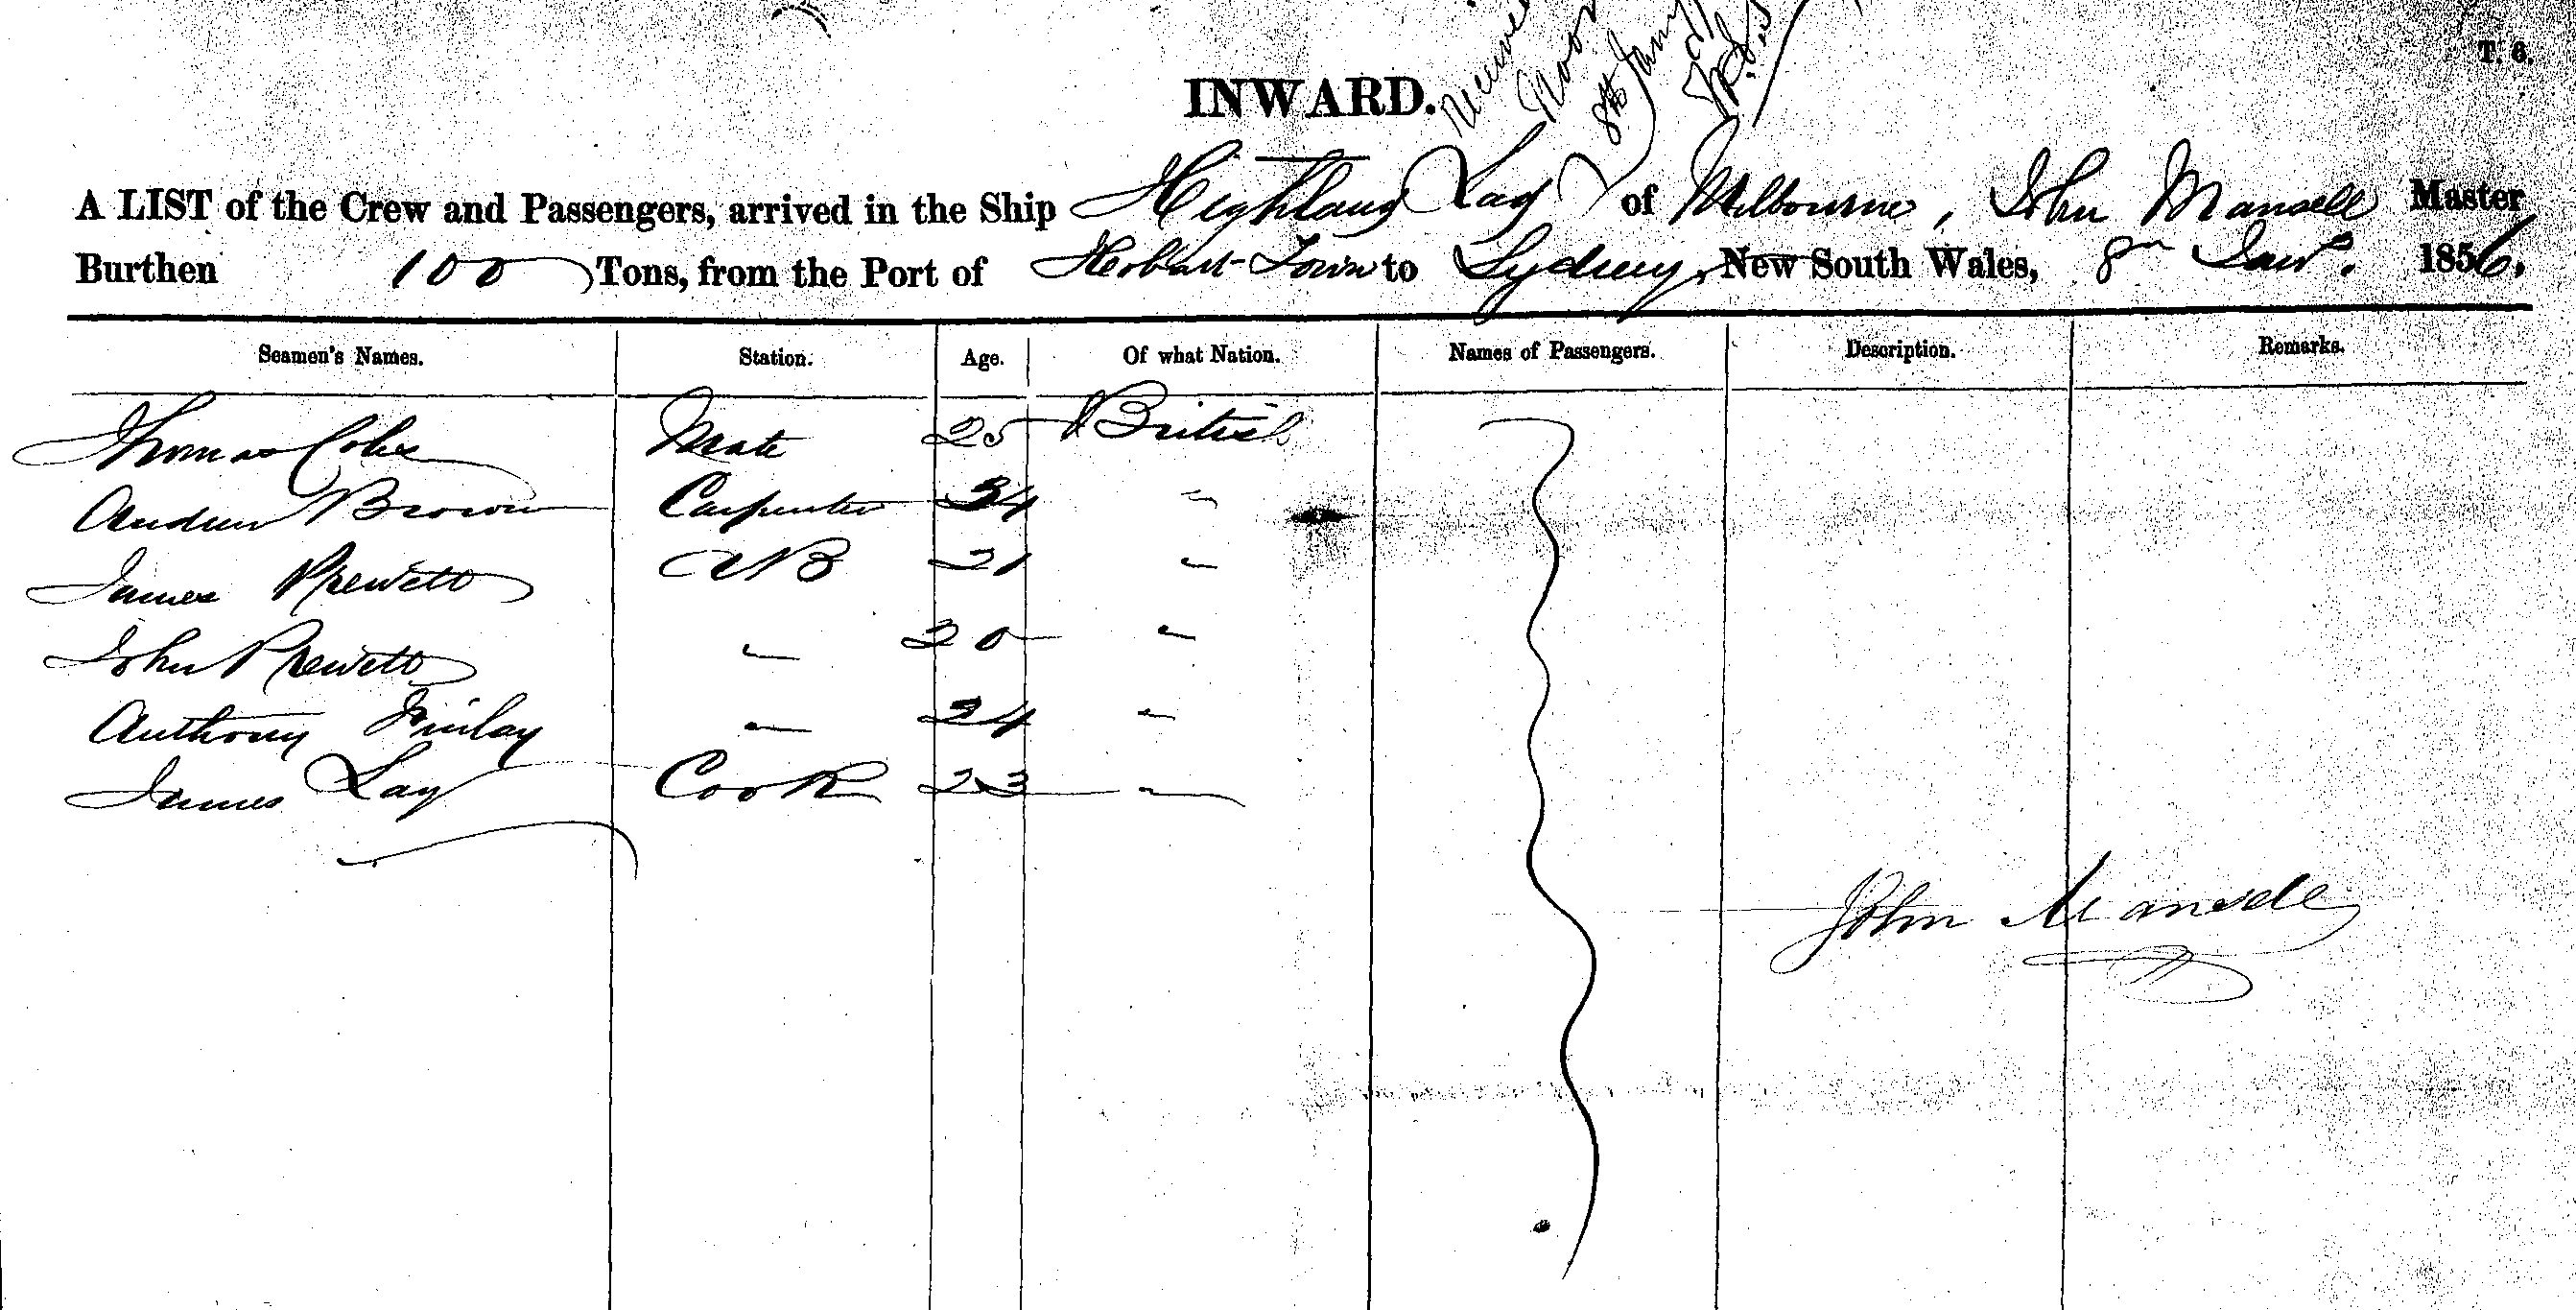 T. 6.
Noon
8th Jany
INWARD.
A LIST of the Crew and Passengers, arrived in the Ship Highland Lass of Melbourne, John Mansell Master
Burthen 100 Tons, from the Port of Hobart-Town to Sydney, New South Wales, 8th Jany. 1856.
Seamen's Names. Station. Age. Of what Nation. Names of Passengers. Description. Remarks.
Thomas Coles Mate 25 British
Andrew Brown Carpenter 34 "
James Prewett AB 21 "
John Prewett " 20 "
Anthony Finlay " 24 "
James Lay Cook 23 "
John Mansell